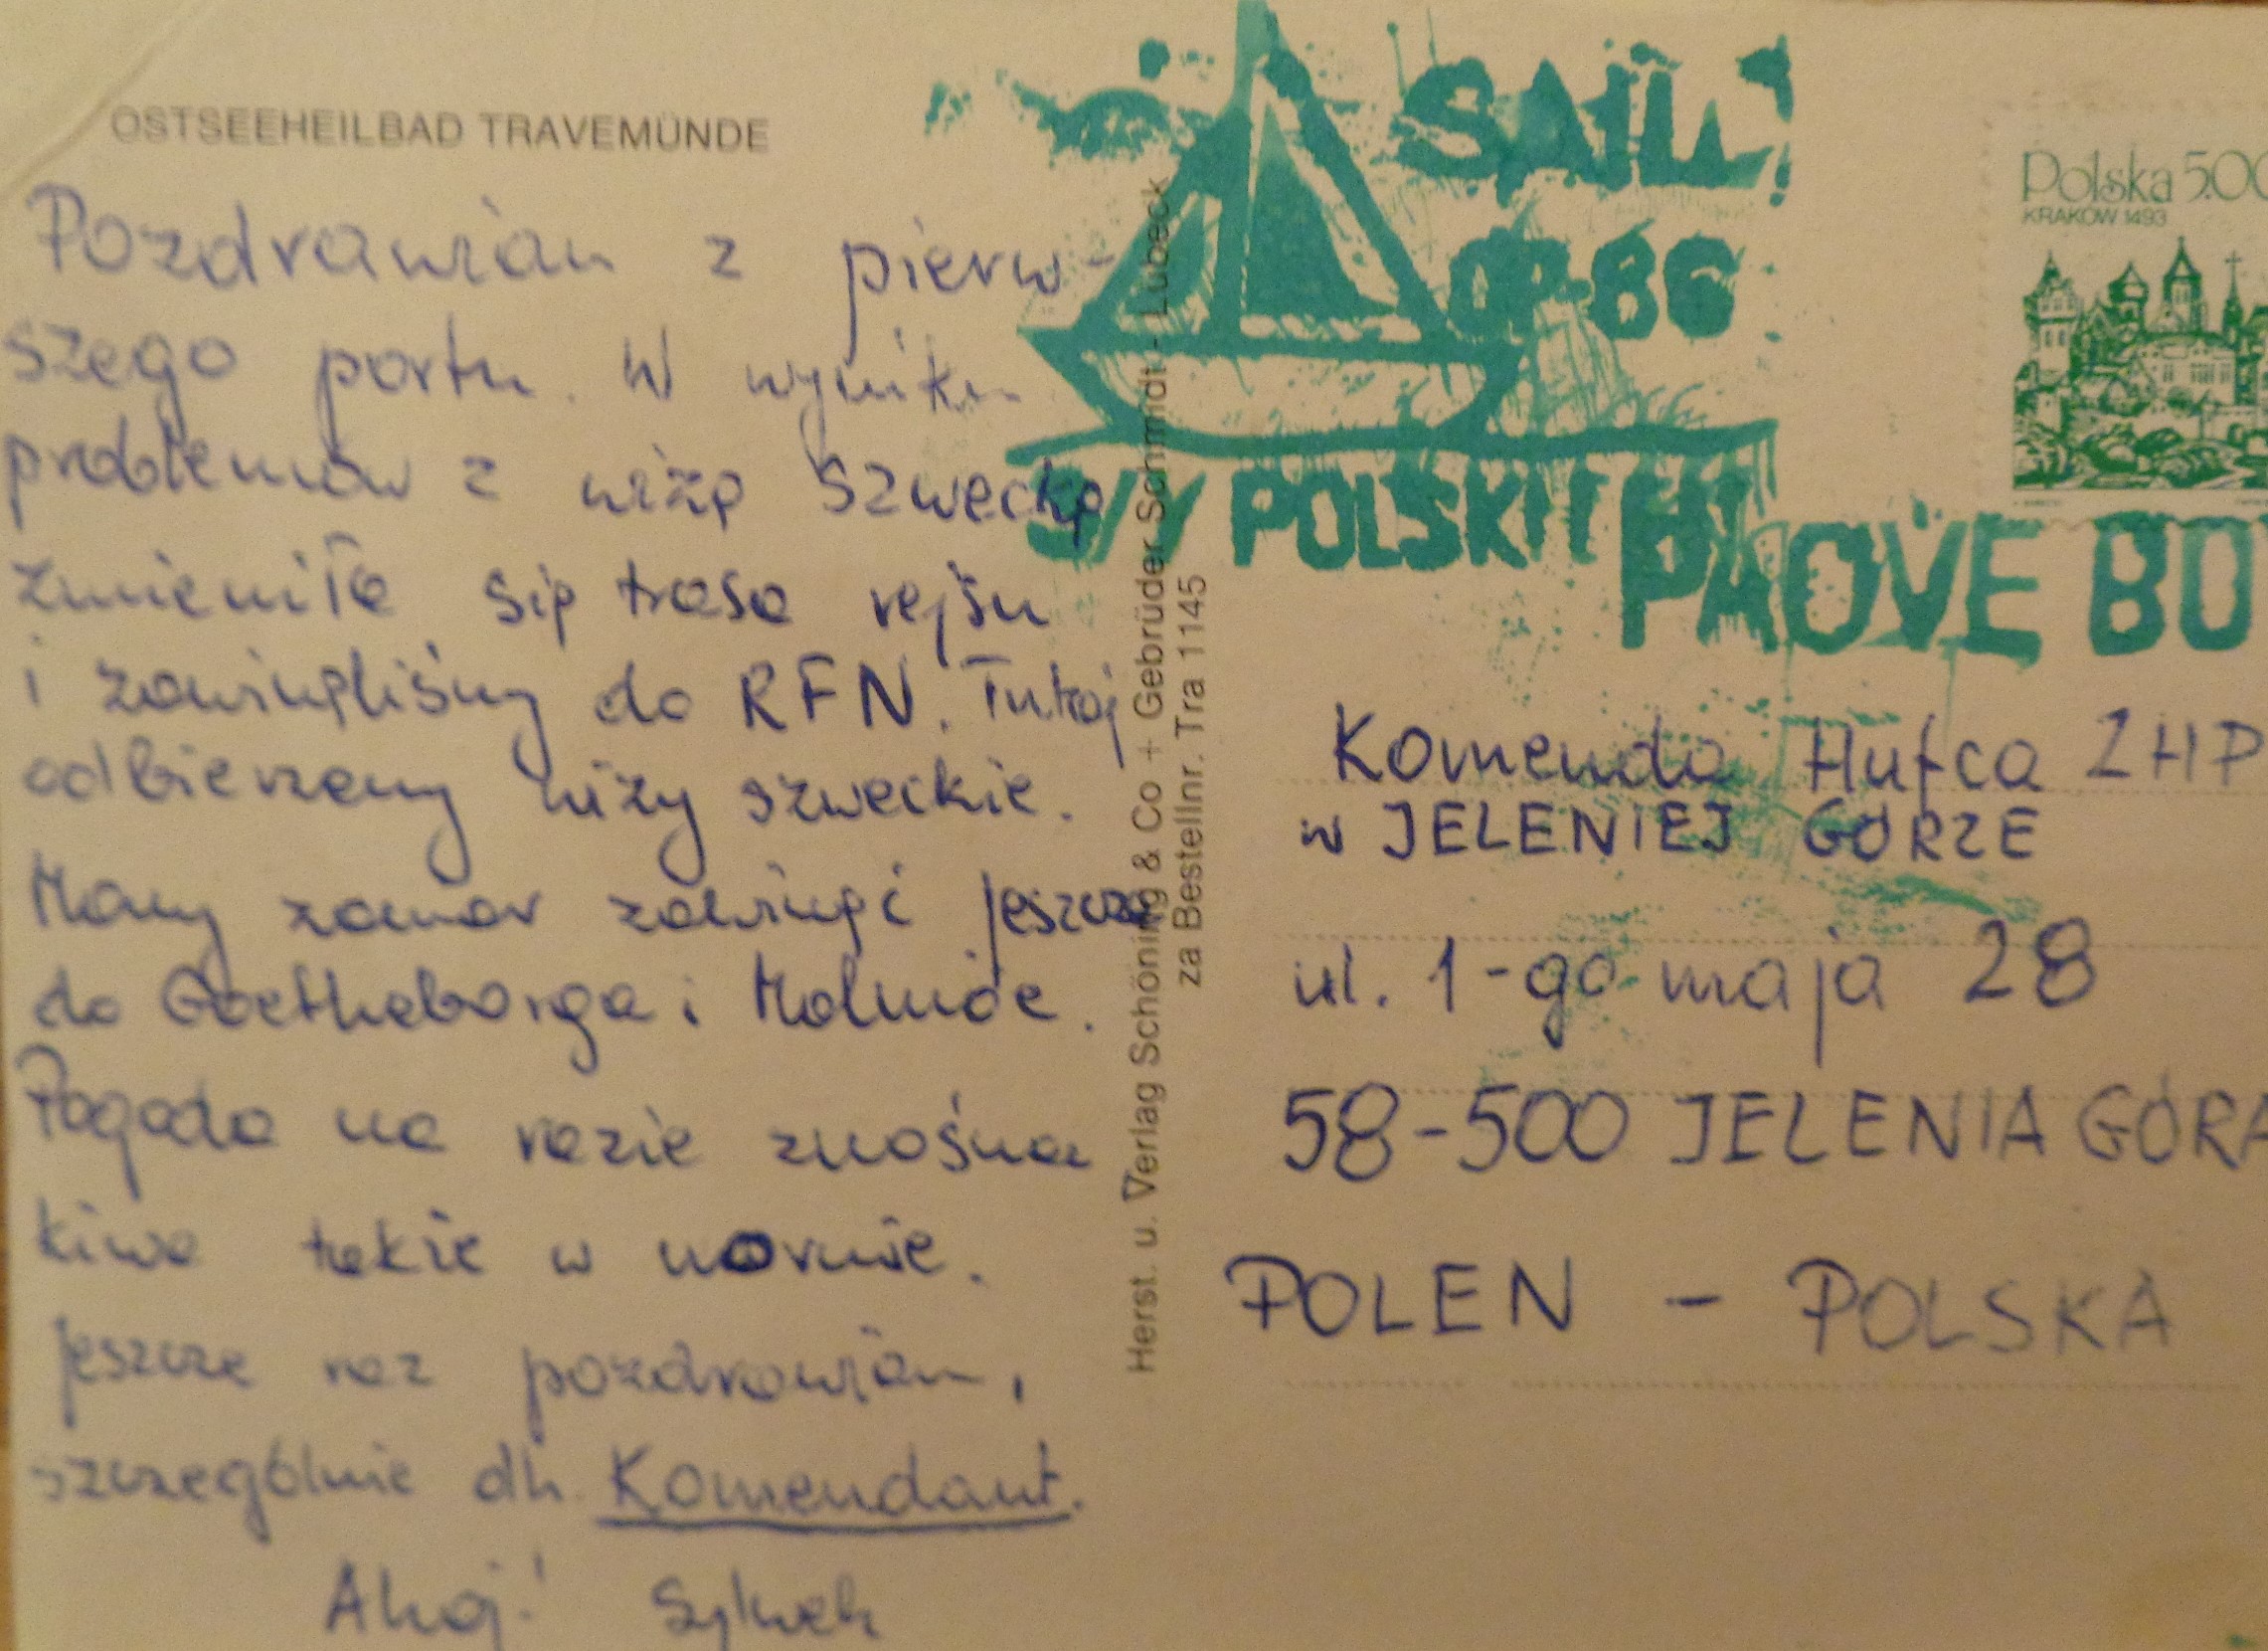 OSTSEEHEILBAD TRAVEMÜNDE
Pozdrawiam z pierw-
szego portu. W wyniku
problemów z wizą szwecką
zmieniła się trasa rejsu
i zawinęliśmy do RFN. Tutaj
odbierzemy wizy szweckie.
Mamy zamiar zawinąć jeszcze
do Goetheborga i Malmöe.
Pogoda na razie znośna
kiwa takie w normie.
Jeszcze raz pozdrawiam,
szczególnie dh. Komendant.
Ahoj! Sylwek
Herst. u. Verlag Schöning & Co + Gebrüder Schmidt - Lübeck
za Bestellnr. Tra 1145
SAIL
OP-86
S/Y POLSKI
PAOVE BO
Polska 5.00
KRAKÓW 1493
Komenda Hufca ZHP
w JELENIEJ GÓRZE
ul. 1-go maja 28
58-500 JELENIA GÓRA
POLEN - POLSKA